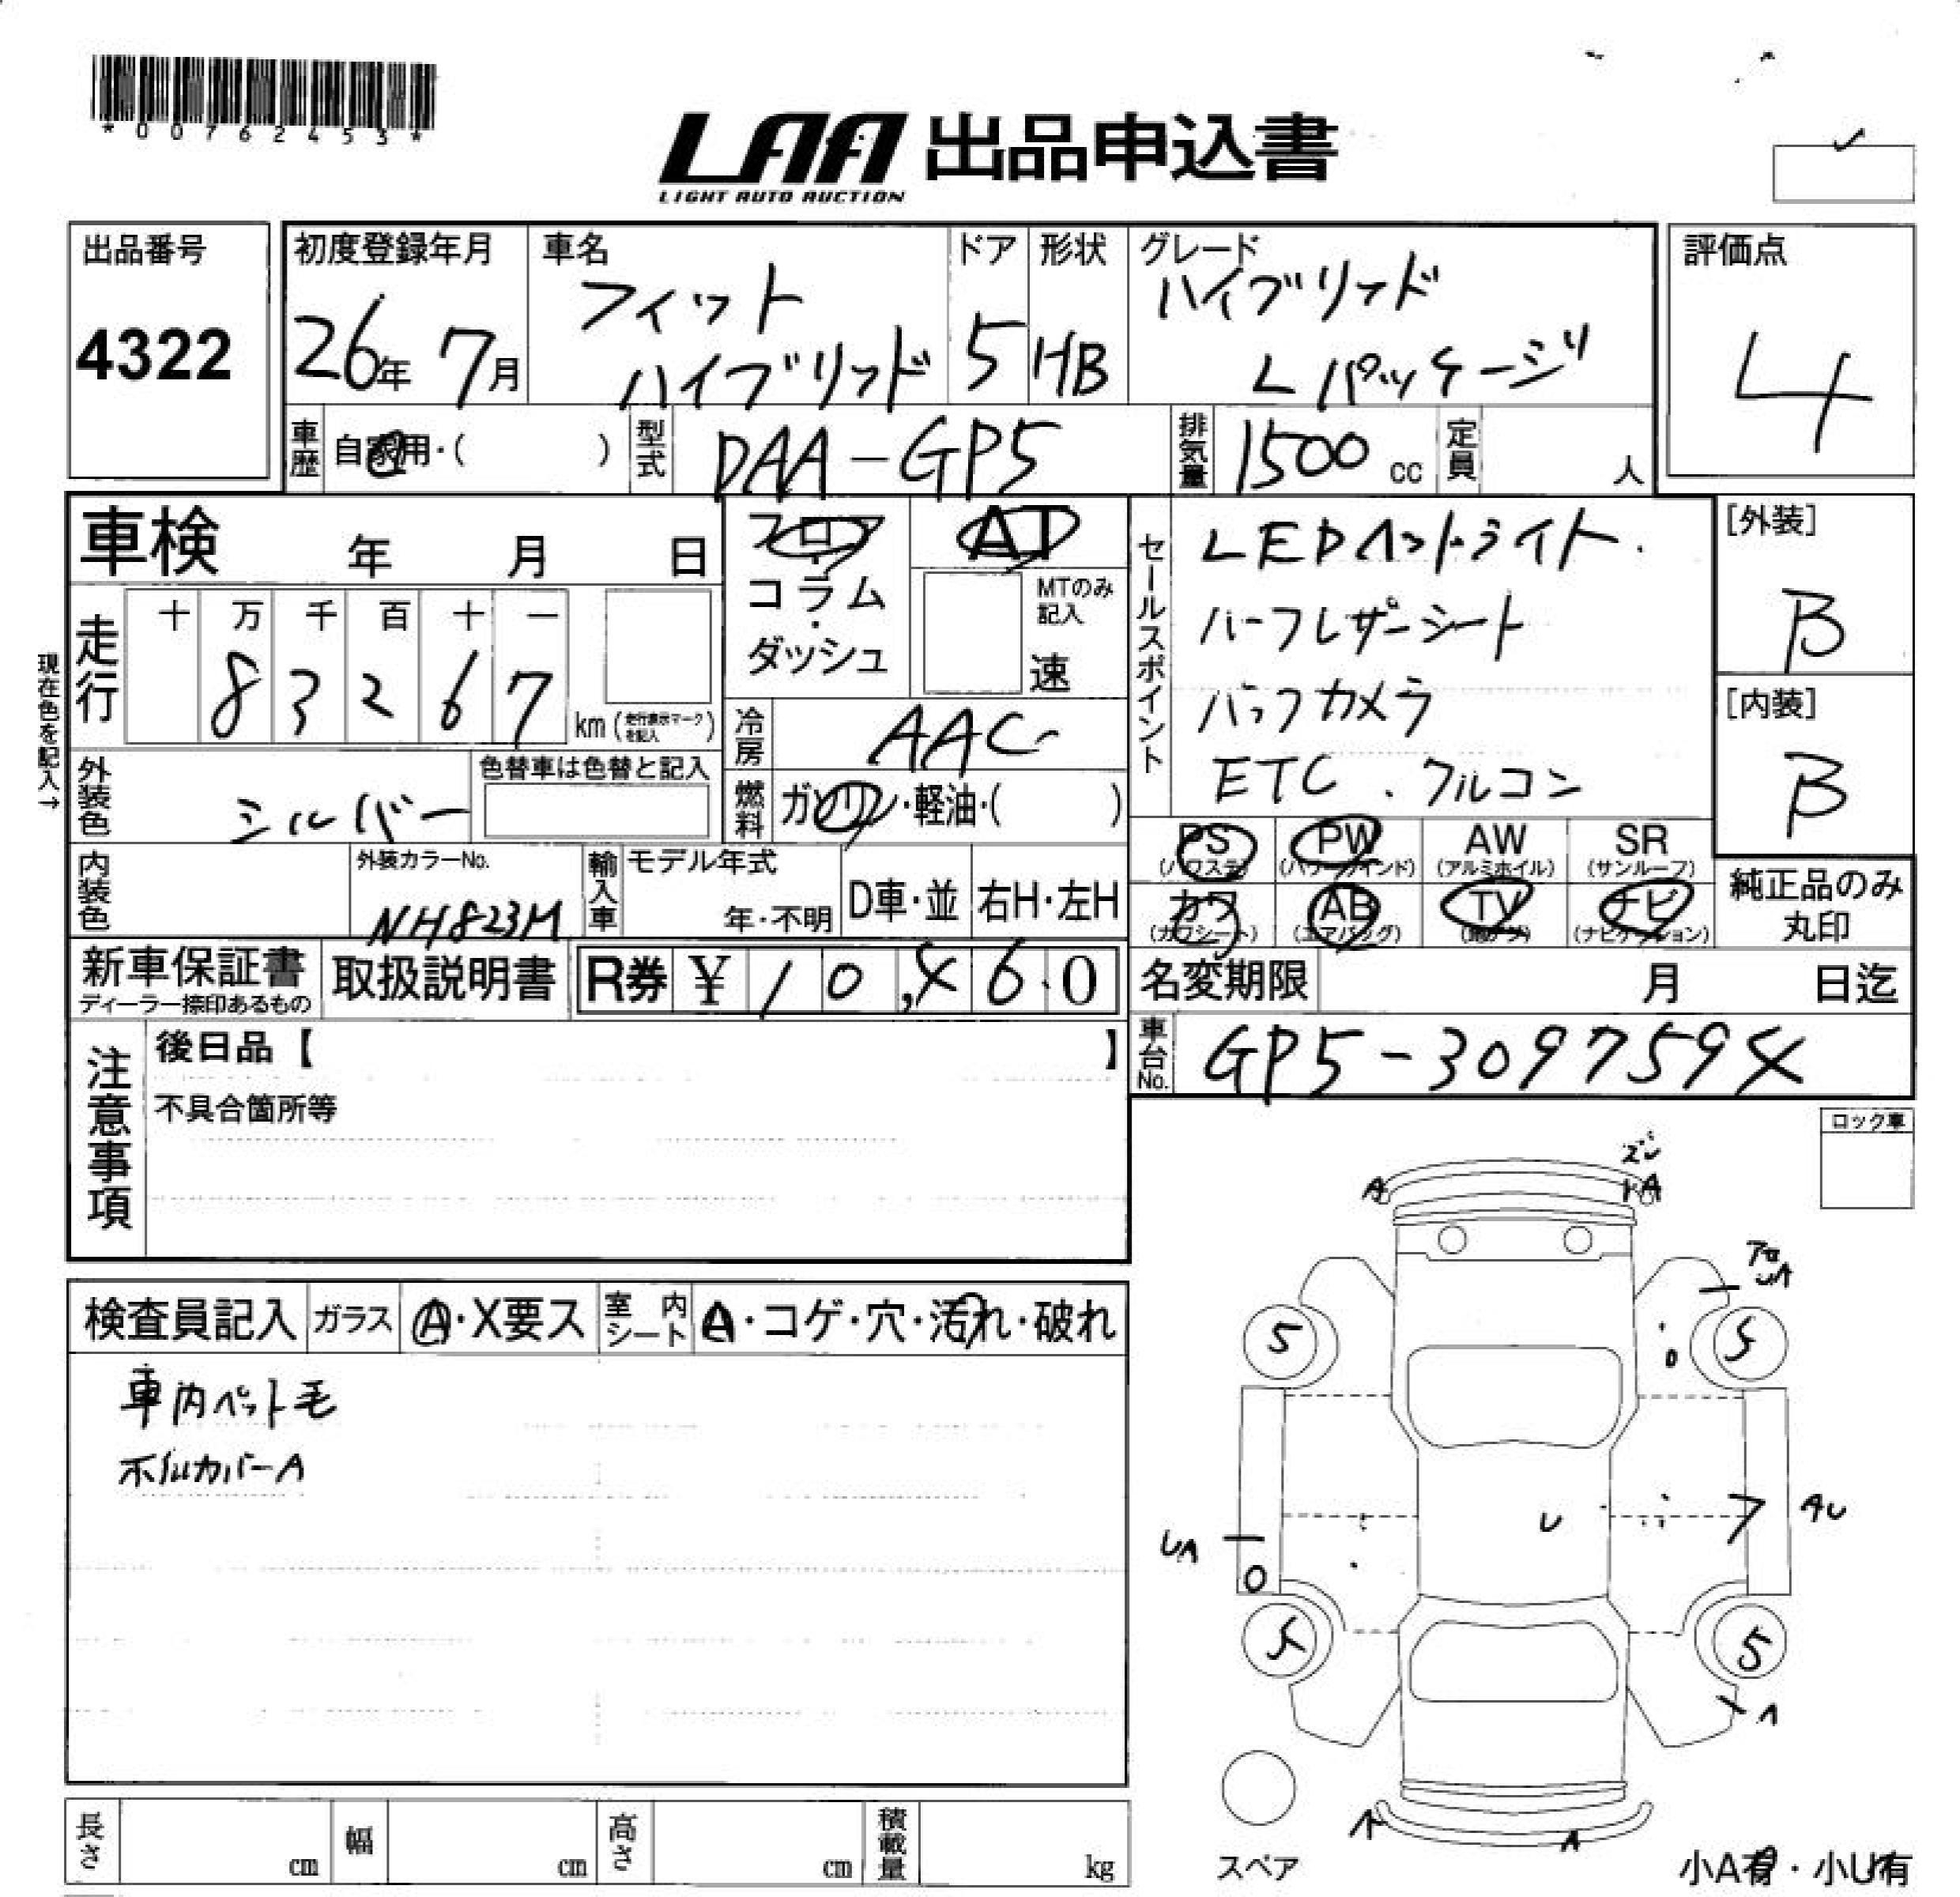 *00762453*
LAA 出品申込書
LIGHT AUTO AUCTION
出品番号
4322
初度登録年月
26年 7月
車名
フィット
ハイブリッド
ドア
5
形状
HB
グレード
ハイブリッド
Lパッケージ
評価点
4
車歴
自家用・( )
型式
DAA-GP5
排気量
1500 cc
定員
人
車検 年 月 日
フロア
・
コラム
・
ダッシュ
AT
MTのみ
記入
速
セールスポイント
LEDヘットライト.
ハーフレザーシート
バックカメラ
ETC . クルコン
[外装]
B
[内装]
B
現在色を記入→
走行
十 万 千 百 十 一
8 3 2 6 7
km (走行表示マークを記入)
冷房
AAC
外装色
シルバー
色替車は色替と記入
燃料
ガソリン・軽油・( )
PS
(パワステ)
PW
(パワーウインド)
AW
(アルミホイル)
SR
(サンルーフ)
カワ
(カワシート)
AB
(エアバッグ)
TV
(地デジ)
ナビ
(ナビゲーション)
純正品のみ
丸印
内装色
外装カラーNo.
NH823M
輸入車
モデル年式
年・不明
D車・並
右H・左H
新車保証書
ディーラー捺印あるもの
取扱説明書
R券 ¥ 10,460
名変期限 月 日迄
車台No.
GP5-3097594
注意事項
後日品【 】
不具合箇所等
ロック車
検査員記入
ガラス
A・X要ス
室内シート
A・コゲ・穴・汚れ・破れ
車内ペット毛
ホイルカバーA
A
ズレ
A
UA
5
5
U
7
AU
UA
5
5
A
A
A
スペア
小A有・小U有
長さ
cm
幅
cm
高さ
cm
積載量
kg